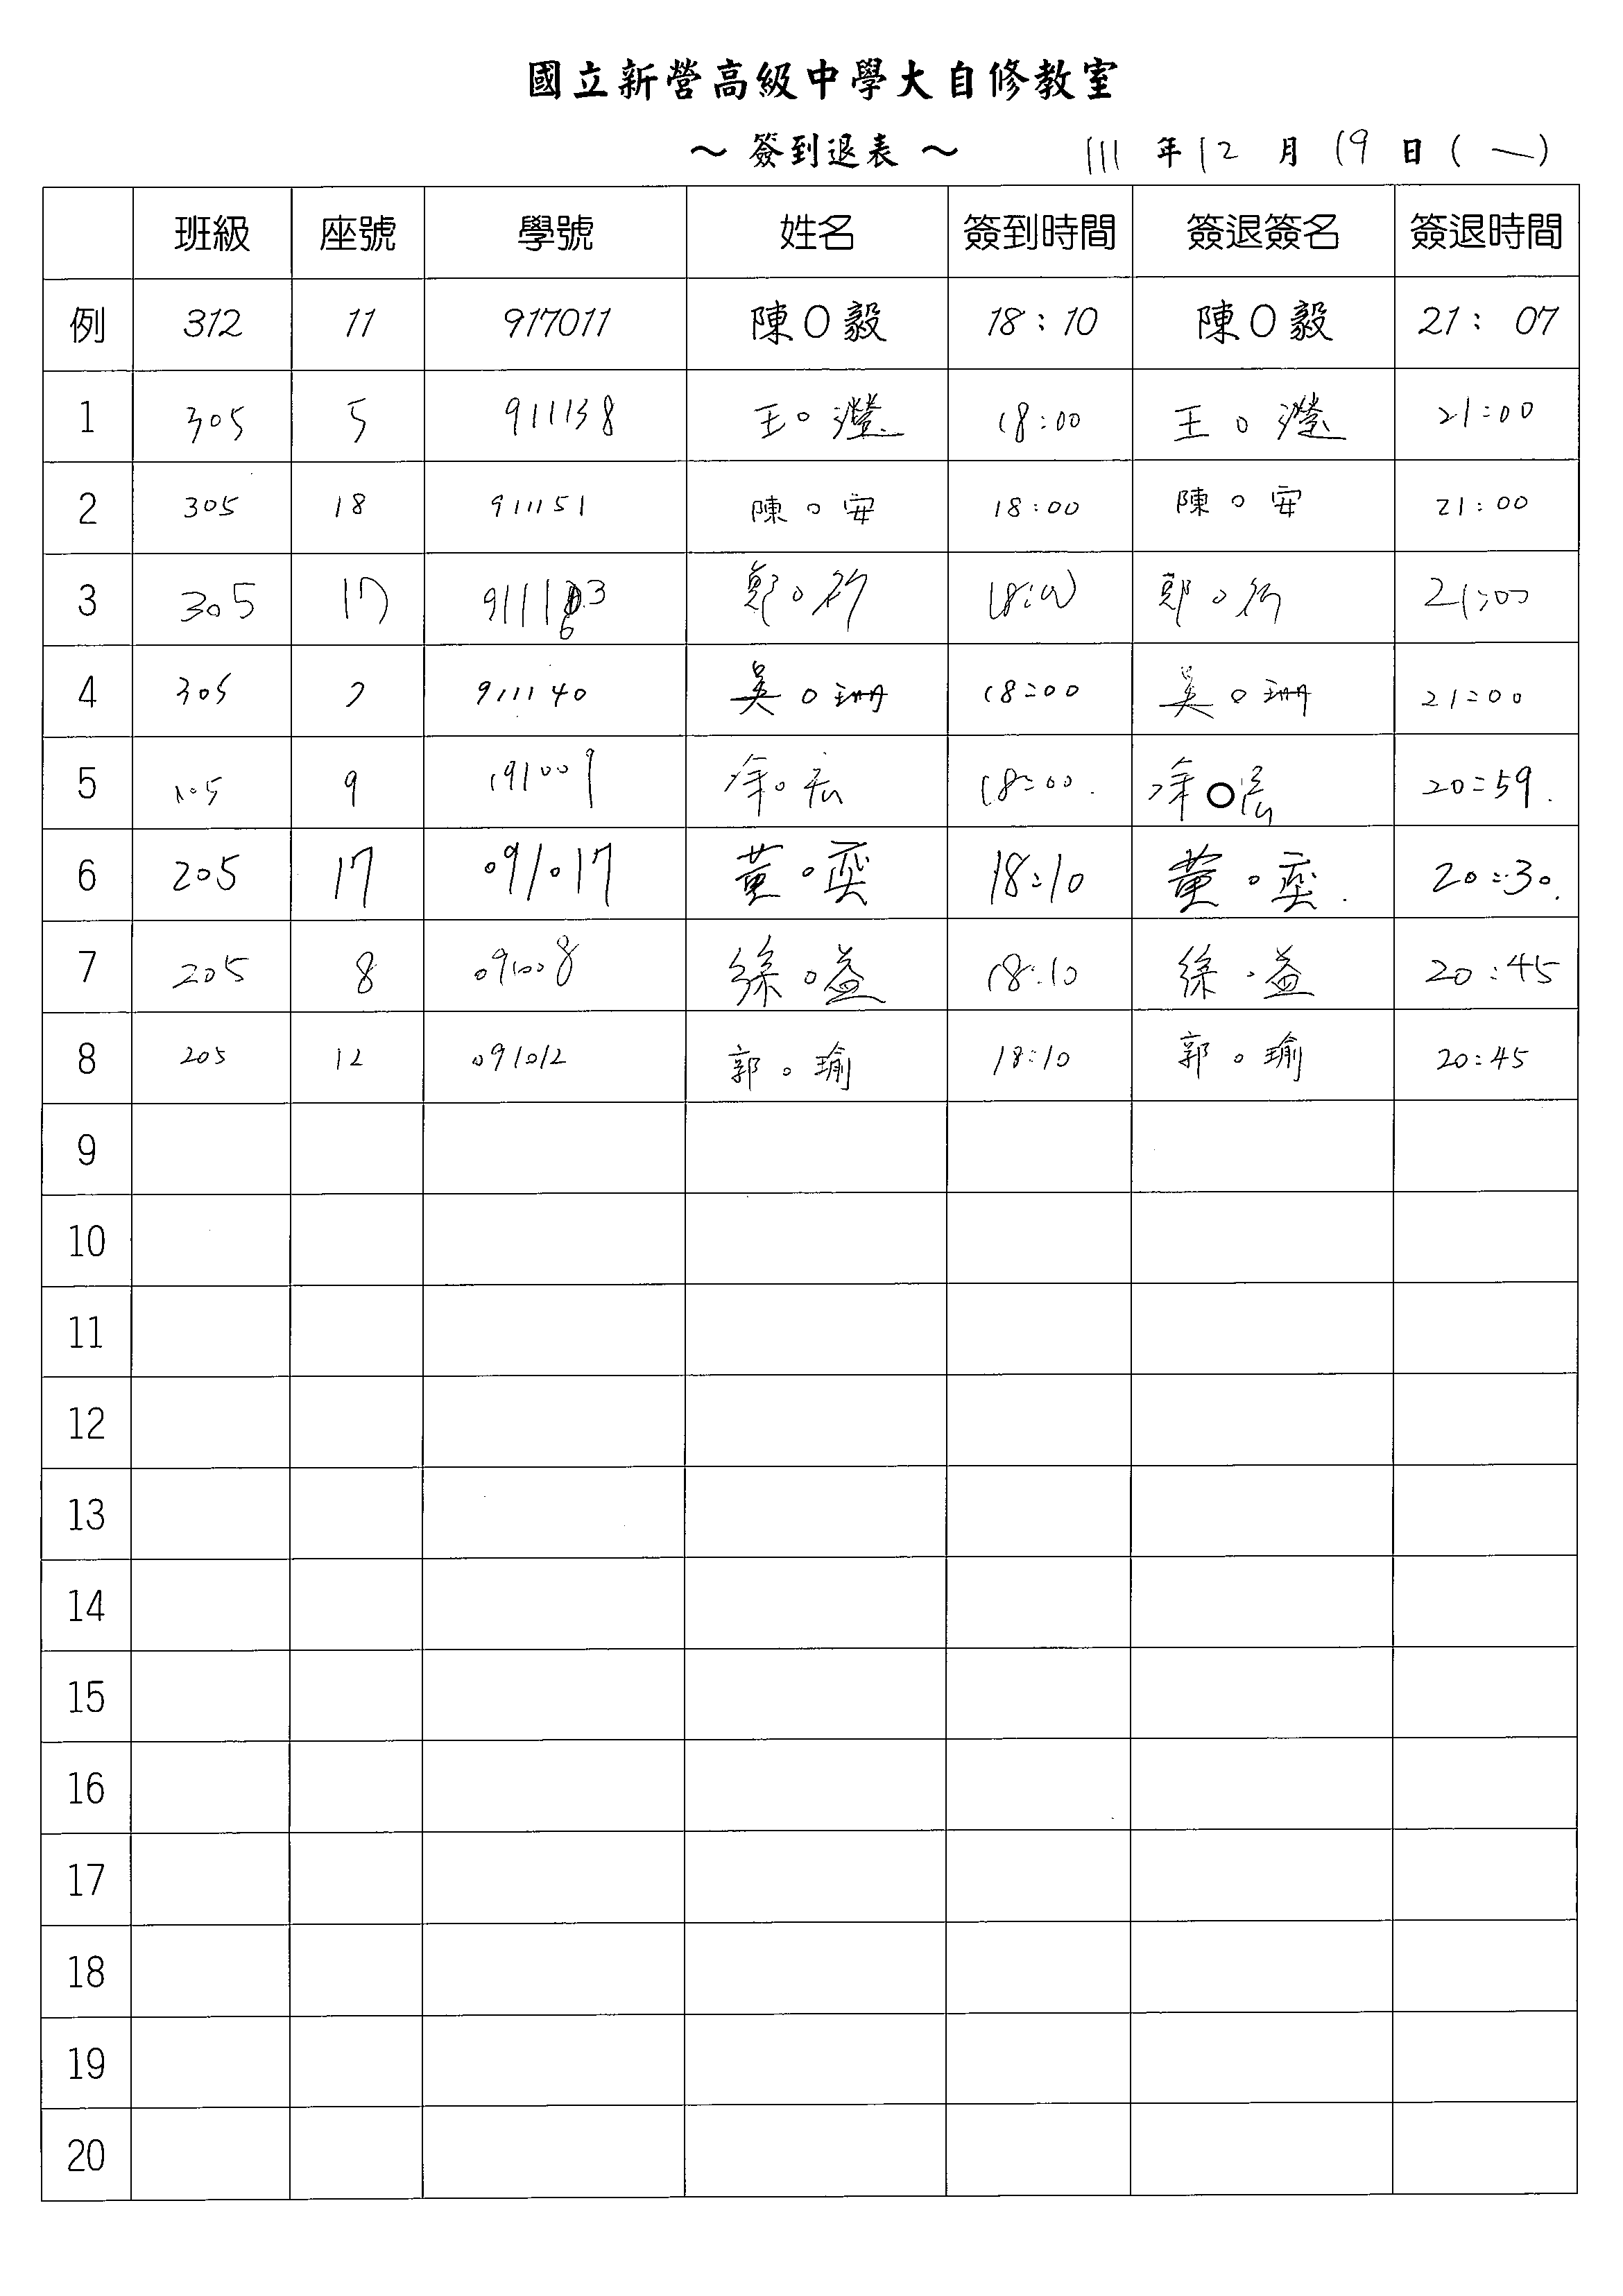 國立新營高級中學大自修教室
～ 簽到退表 ～ 111 年 12 月 19 日 ( 一 )
班級 座號 學號 姓名 簽到時間 簽退簽名 簽退時間
例 312 11 917011 陳O毅 18：10 陳O毅 21： 07
1 305 5 911138 王O瀅 18:00 王O瀅 21:00
2 305 18 911151 陳O安 18:00 陳O安 21:00
3 305 17 鄭O 18:00 鄭O 21:00
4 305 7 911140 吳O珊 18:00 吳O珊 21:00
5 105 9 191009 涂O 18:00 涂O 20:59
6 205 17 091017 黃O奕 18:10 黃O奕 20:30
7 205 8 091008 徐O益 18:10 徐O益 20:45
8 205 12 091012 郭O瑜 18:10 郭O瑜 20:45
9
10
11
12
13
14
15
16
17
18
19
20